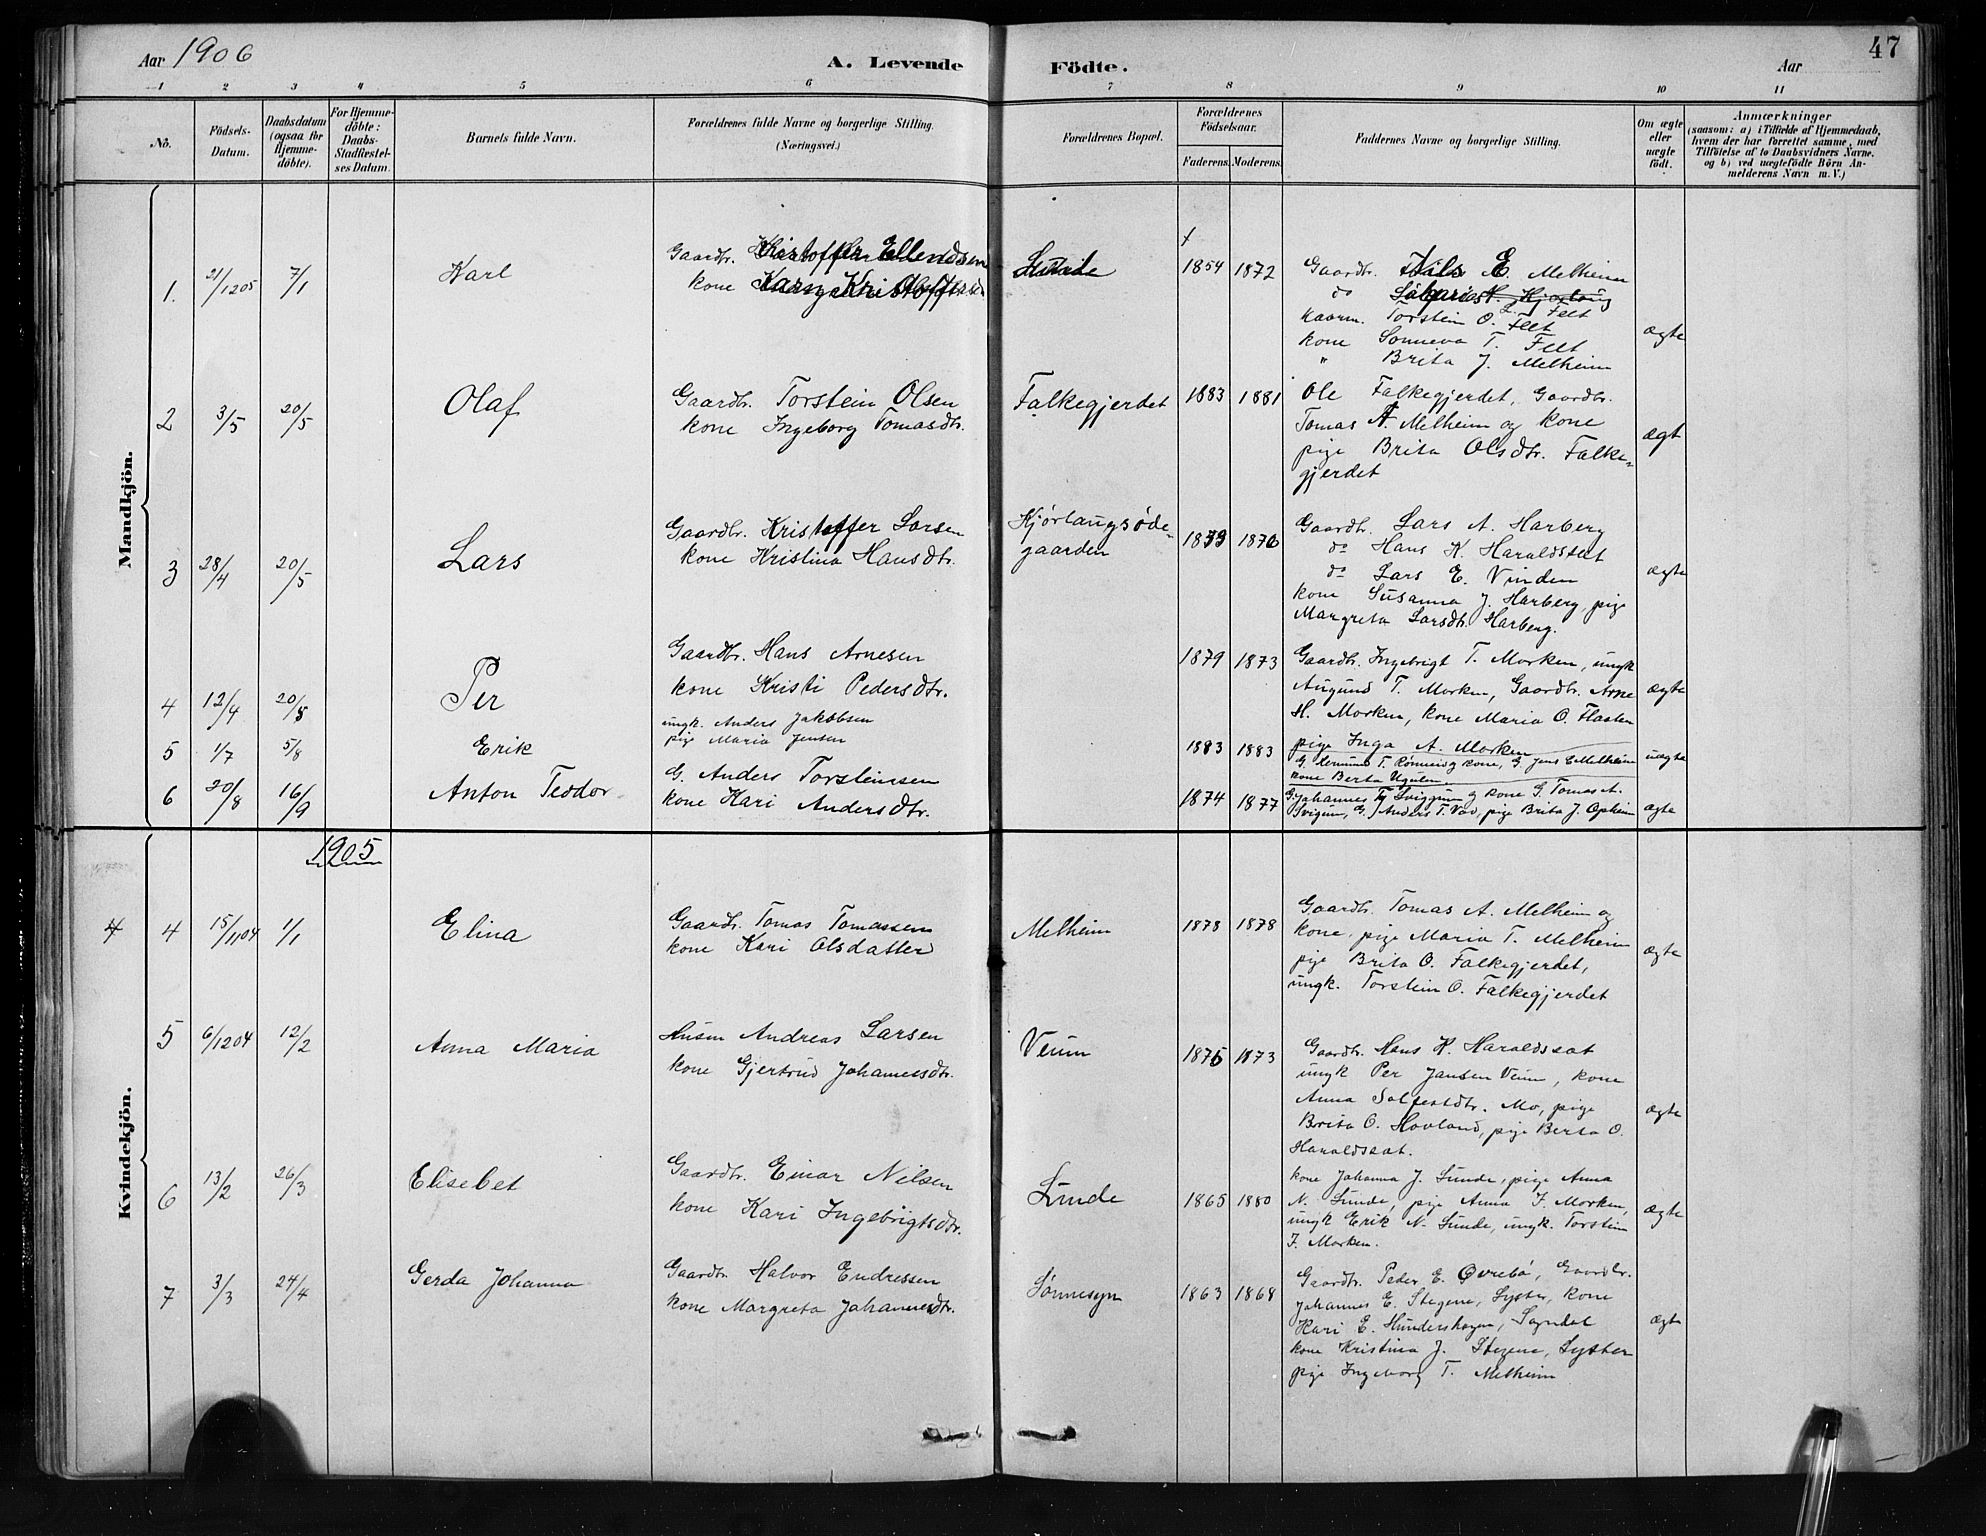 Aar 1906
A. Levende Födte.
Aar
47
1 2 3 4 5 6 7 8 9 10 11
No.
Födsels-Datum.
Daabsdatum (ogsaa for Hjemme-döbte).
For Hjemme-döbte: Daabs-Stadfæstel-ses Datum.
Barnets fulde Navn.
Forældrenes fulde Navne og borgerlige Stilling. (Næringsvei.)
Forældrenes Bopæl.
Forældrenes Födselsaar.
Faderens. Moderens.
Faddernes Navne og borgerlige Stilling.
Om ægte eller uægte født.
Anmærkninger
(saasom: a) i Tilfælde af Hjemmedaab,
hvem der har forrettet samme, med
Tilföielse af to Daabsvidners Navne.
og b) ved uægtefödte Börn An-
melderens Navn m. V.)
Mandkjön.
1. 21/12 05 7/1 Karl
Gaardbr. Kristoffer Ellendsen
kone
1854 1872
Gaardbr. Nils E. Melheim
do
kaarm. Torstein O. Felt
kone Sonneva T. Felt
" Brita J. Melheim
ægte
2 3/5 20/5 Olaf
Gaardbr. Torstein Olsen
kone Ingeborg Tomasdtr.
Falkegjerdet 1883 1881
Ole Falkegjerdet, Gaardbr.
Tomas A. Melheim og kone
pige Brita Olsdtr. Falke-
gjerdet
ægt
3 28/4 20/5 Lars
Gaardbr. Kristoffer Larsen
kone Kristina Hansdtr.
Kjørlaugsøde-
gaarden
1876
Gaardbr. Lars A. Harberg
do Hans K. Haraldsset
do Lars E. Vinden
kone Susanna J. Harberg, pige
Margreta Larsdtr. Harberg.
ægte
4 12/4 20/5 Per
Gaardbr. Hans Arnesen
kone Kristi Pedersdtr.
1879 1873
Gaardbr. Ingebrigt T. Morken, ungk
Augund T. Morken, Gaardbr. Arne
H. Morken, kone Maria O. Flaten
pige Inga A. Morken
ægte
5 1/7 5/8 Erik
ungk. Anders Jakobsen
pige Maria Jensen
1883 1883
G. T. Rønnei og kone, G. Jens E Melheim
kone Berta Ugulen
uægte
6 20/8 16/9 Anton Teodor
G. Anders Torsteinsen
kone Kari Andersdtr.
1874 1877
G. Johannes T. Sviggum og kone G. Tomas A.
Svigum, G. Anders T. Væ, pige Brita J. Opheim
ægte
1905
Kvindekjön.
4 4 15/11 04 1/1 Elina
Gaardbr. Tomas Tomassen
kone Kari Olsdatter
Melheim 1878 1878
Gaardbr. Tomas A. Melheim og
kone, pige Maria T. Melheim
pige Brita O. Falkegjerdet,
ungk. Torstein O. Falkegjerdet
ægte
5 6/12 04 12/2 Anna Maria
Husm Andreas Larsen
kone Gjertrud Johannesdtr.
Veum 1875 1873
Gaardbr. Hans K. Haraldsset
ungk Per Jansen Veum, kone
Anna Solfestdtr. Mo, pige
Brita O. Hovland, pige Berta O.
Haraldsset.
ægte
6 13/2 26/3 Elisebet
Gaardbr. Einar Nilsen
kone Kari Ingebrigtsdtr.
Lunde 1865 1880
kone Johanna J. Lunde, pige Anna
N. Lunde, pige Anna I. Morken,
ungk Erik N. Lunde, ungk. Torstein
I. Morken.
ægte
7 3/3 24/4 Gerda Johanna
Gaardbr. Halvor Endressen
kone Margreta Johannesdtr.
Sønnesyn 1863 1868
Gaardbr. Peder E. Øvrebø, Gaardbr.
Johannes E. Stegene, Lyster, kone
Kari E. Hundershagen, Sogndal
kone Kristina J. Stegene, Lyster
pige Ingeborg T. Melheim
ægte